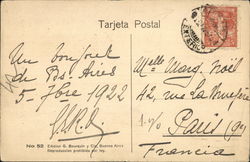 Tarjeta Postal
Un bonjour
de Bs. Aires
5-7bre 1922
Melle Marg. Noël
42, rue La Bruyère
Paris (9e)
Francia
No 52 Editor G. Bourquin y Cia, Buenos Aires
Reproducción prohibida por ley.